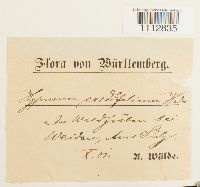 1112835
Flora von Württemberg.
Hypnum cordifolium Hedw
in Waldgräben bei
Weiden, Amt Sulz.
A. Wälde.